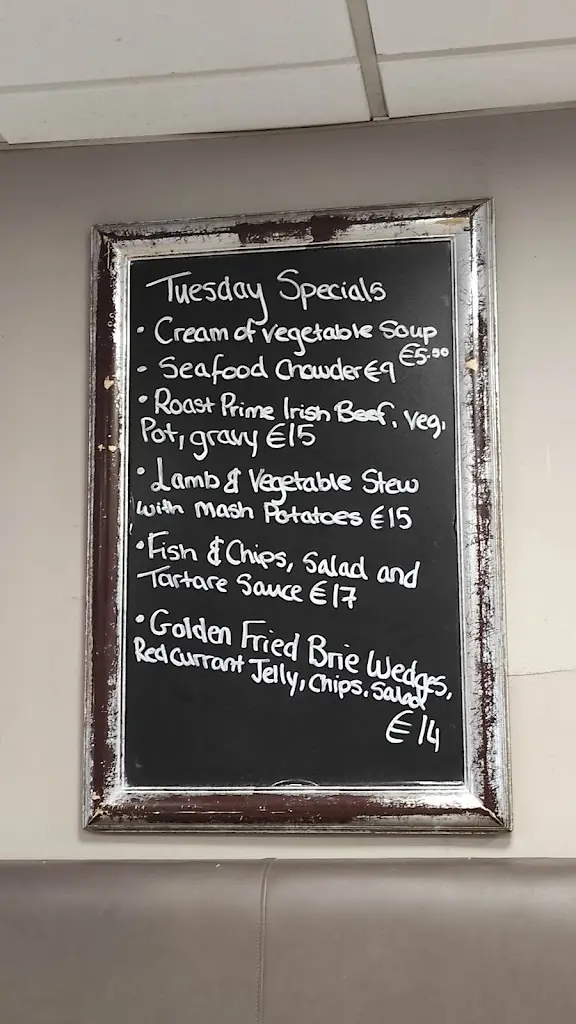 Tuesday Specials
• Cream of vegetable Soup
€5.50
• Seafood Chowder €9
• Roast Prime Irish Beef, veg,
Pot, gravy €15
• Lamb & Vegetable Stew
with mash Potatoes €15
• Fish & Chips, Salad and
Tartare Sauce €17
• Golden Fried Brie Wedges,
Red currant Jelly, chips, Salad
€14